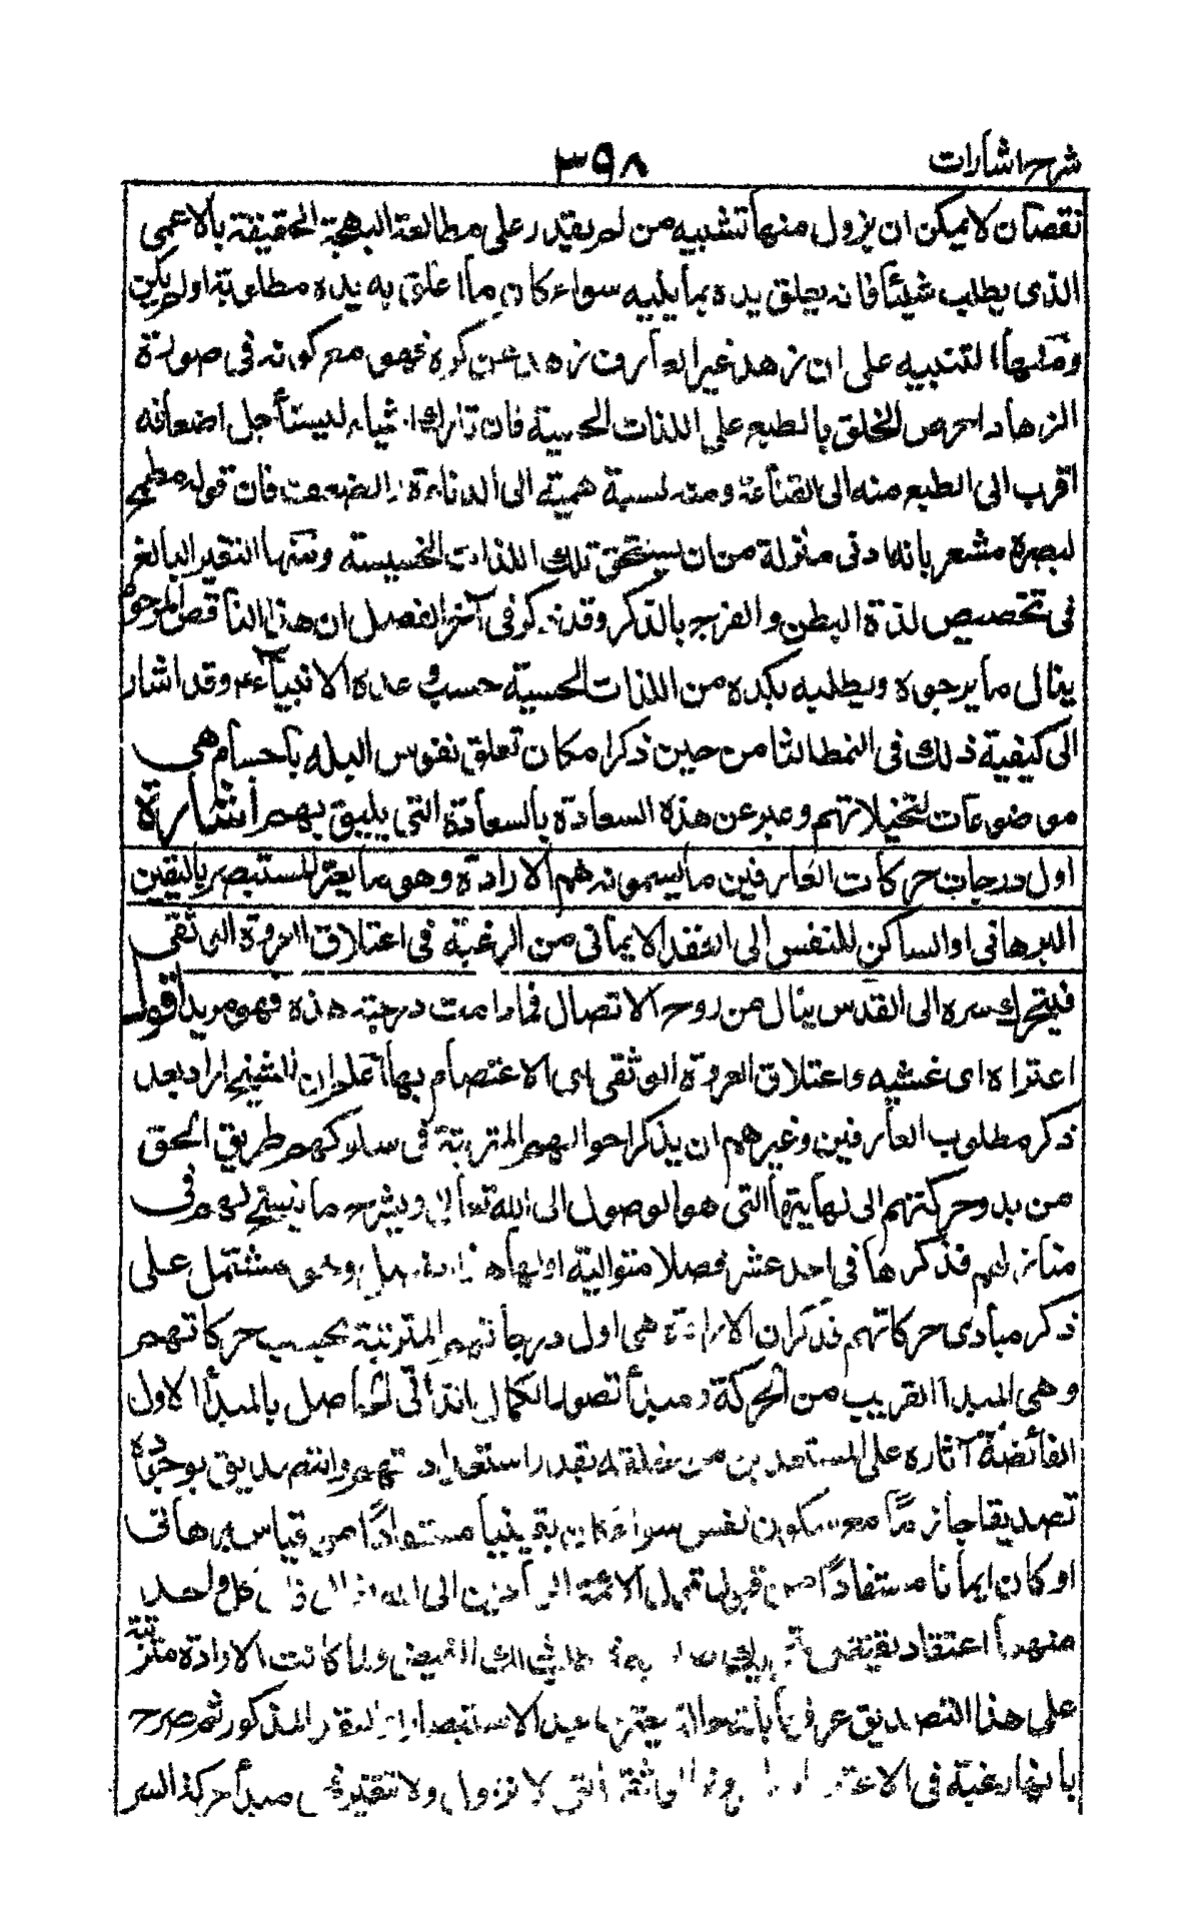 شرح اشارات
٣٩٨
نقصان لا يمكن ان يزول منها تشبيه من لم يقدر على مطالعة البهجة الحقيقية بالاعمى
الذى يطلب شيئا فانه يعلق يده بما يليه سواء كان ما اعلق به يده مطلوبة اولم يكن
ومنها التنبيه على ان زهد غير العارف زهد عن كره فهو مع كونه فى صورة
الزهاد احرص الخلق بالطبع على اللذات الحسية فان تارك شياء ليستأجل اضعافه
اقرب الى الطبع منه الى القناعة ومنه نسبة همته الى الدناءة والضعف فان قوله مطمح
لبصره مشعر بانه ادنى منزلة من ان يستحق تلك اللذات الخسيسة ومنها التقدير البالغ
فى تخصيص لذة البطن والفرج بالذكر وقد ذكر فى آخر الفصل ان هذا الناقص المرحوم
ينال ما يرجوه ويطلبه بكده من اللذات الحسية حسب وعده الانبياء ع وقد اشار
الى كيفية ذلك فى النمط الثامن حين ذكر امكان تعلق نفوس البله باجسام هى
موضوعات لتخيلاتهم وعبر عن هذه السعادة بالسعادة التى يليق بهم اشارة
اول درجات حركات العارفين ما يسمونه هم الارادة وهو ما يعتر المستبصر باليقين
البرهانى او الساكن للنفس الى العقد الايمانى من الرغبة فى اعتلاق العروة الوثقى
فيتحرك سره الى القدس ينال من روح الاتصال فما دامت درجته هذه فهو مريد اقول
اعتراه اى غشيه واعتلاق العروة الوثقى اى الاعتصام بها اعلم ان الشيخ اراد بعد
ذكر مطلوب العارفين وغيرهم ان يذكر احوالهم المترتبة فى سلوكهم طريق الحق
من بدو حركتهم الى نهايتها التى هو الوصول الى الله تعالى ويشرح ما ينسح لهم فى
منازلهم فذكرها فى احد عشر فصلا متوالية اولها هذا وهو مشتمل على
ذكر مبادى حركاتهم فذكر ان الارادة هى اول درجاتهم المترتبة بحسب حركاتهم
وهى المبدأ القريب من الحركة ومبدأ تصور الكمال الذاتى الحاصل بالمبدأ الاول
الفائضة آثاره على المستعدين من خلقه بقدر استعدادتهم والتصديق بوجوده
تصديقا جازما مع سكون نفس سواء كان يقينيا مستفادا من قياس برهانى
او كان ايمانا مستفادا من قبول قول الائمة الهادين الى الله فان كل واحد
منهما اعتقاد يقتضى تحريك ذلك الفيض ولما كانت الارادة مترتبة
على هذا التصديق عرفها بانها حالة يعترى بعد الاستبصار العقد المذكور ثم صرح
بانها رغبة فى الوثقى التى لا تزول ولا تتغير فهى مبدأ حركة السر